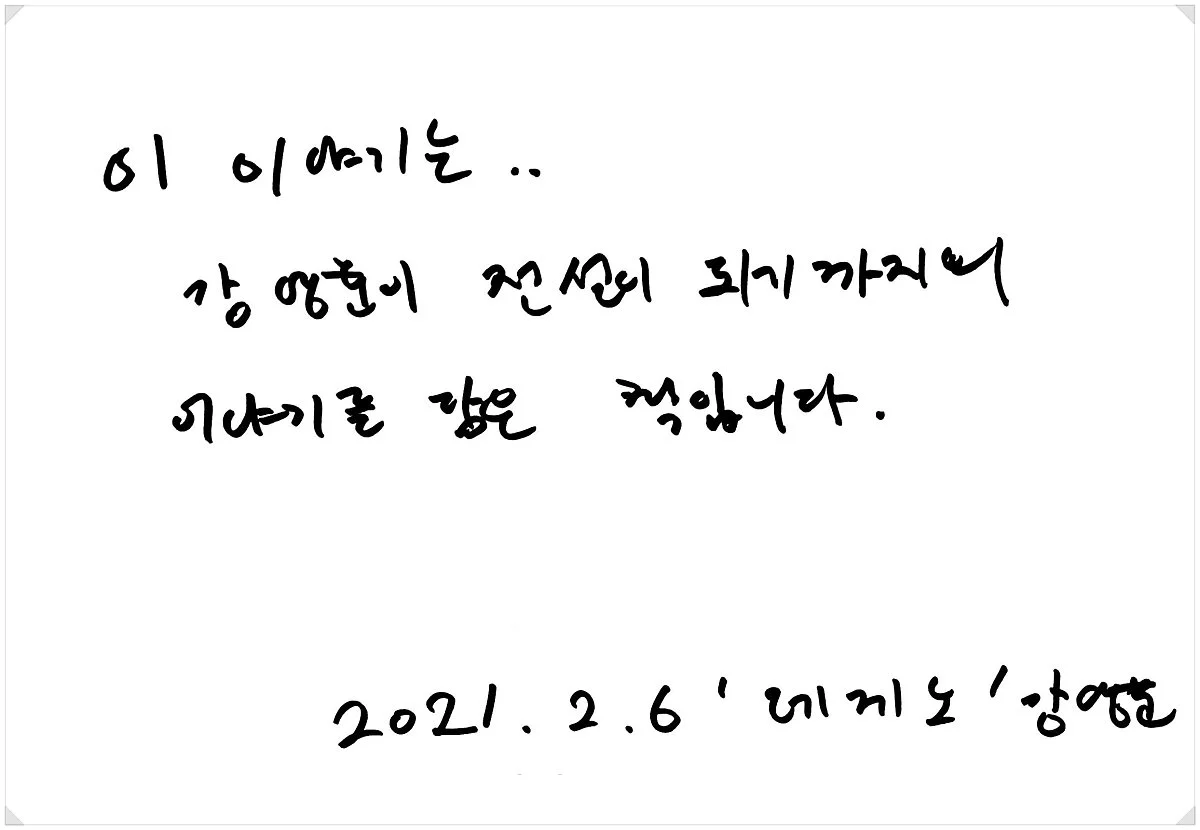 이 이야기는..
강영훈이 전설이 되기까지의
이야기를 담은 책입니다.
2021.2.6 '레게노' 강영훈